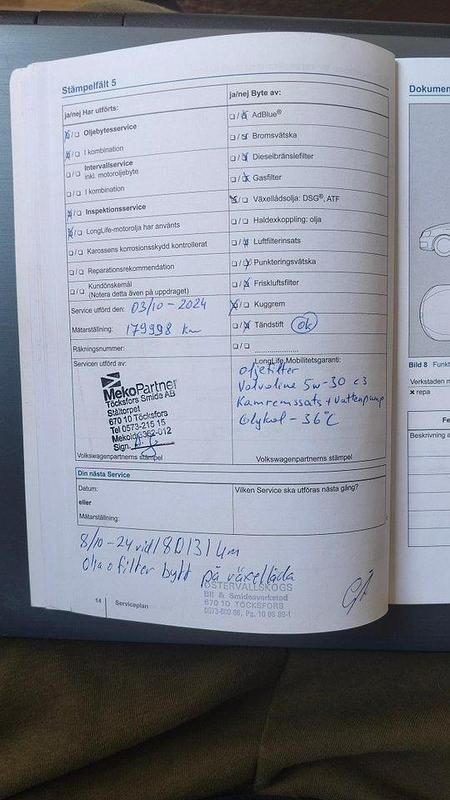 Stämpelfält 5
ja/nej Har utförts:
Oljebytesservice
I kombination
Intervallservice
inkl. motoroljebyte
I kombination
Inspektionsservice
LongLife-motorolja har använts
Karossens korrosionsskydd kontrollerat
Reparationsrekommendation
Kundönskemål
(Notera detta även på uppdraget)
Service utförd den: 03/10 - 2024
Mätarställning: 179998 km
Räkningsnummer:
Servicen utförd av:
MekoPartner
Töcksfors Smide AB
Ståltorpet
670 10 Töcksfors
Tel 0573-215 15
Mekoid:362-012
Sign.
Volkswagenpartnerns stämpel
ja/nej Byte av:
AdBlue®
Bromsvätska
Dieselbränslefilter
Gasfilter
Växellådsolja: DSG®, ATF
Haldexkoppling: olja
Luftfilterinsats
Punkteringsvätska
Friskluftsfilter
Kuggrem
Tändstift ok
LongLife Mobilitetsgaranti:
oljefilter
Valvoline 5w-30 c3
Kamremssats + Vattenpump
Glykol - 36°C
Volkswagenpartnerns stämpel
Din nästa Service
Datum:
eller
Mätarställning:
Vilken Service ska utföras nästa gång?
8/10 -24 vid 180131 km
Olja o filter bytt på växellåda
ÖSTERVALLSKOGS
Bil & Smidesverkstad
670 10 TÖCKSFORS
14 Serviceplan
Dokumen
Bild 8 Funk
Verkstaden m
× repa
Fe
Beskrivning a